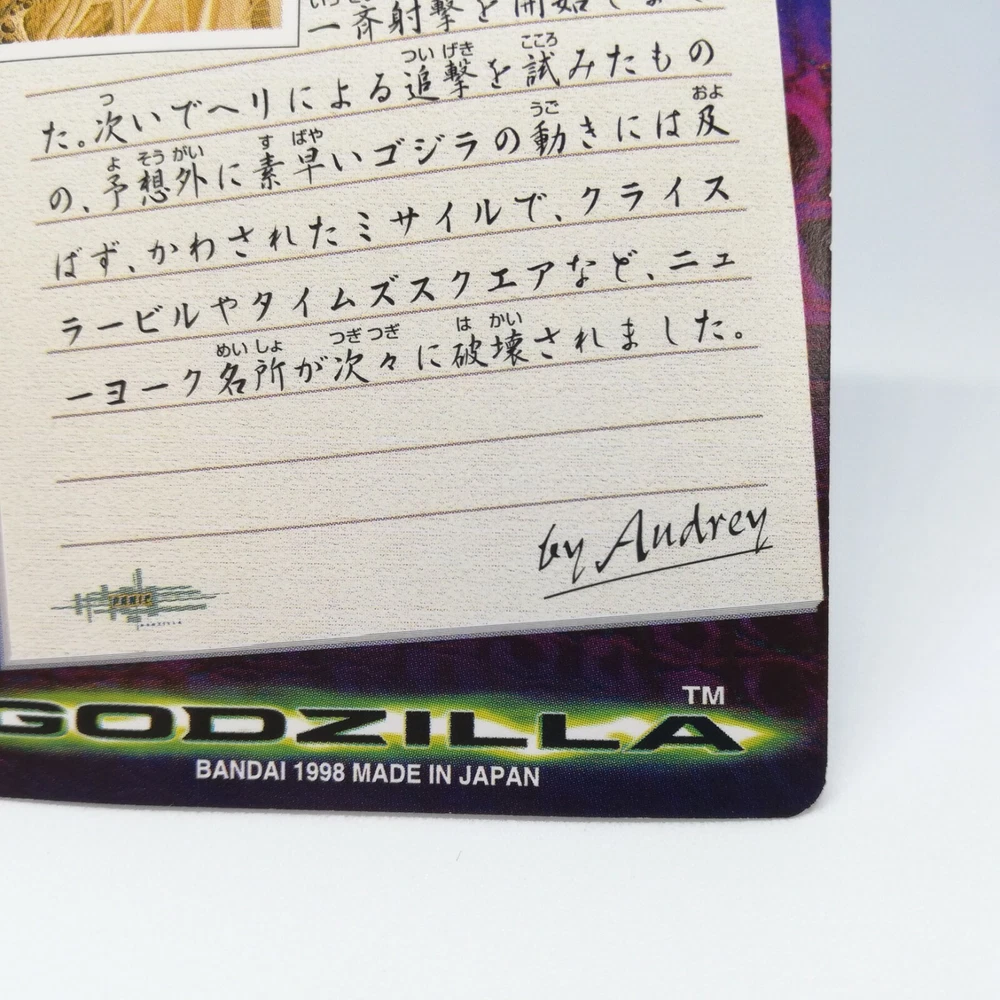 一斉射撃を開始しまし
た。次いでヘリによる追撃を試みたもの
の、予想外に素早いゴジラの動きには及
ばず、かわされたミサイルで、クライス
ラービルやタイムズスクエアなど、ニュ
ーヨーク名所が次々に破壊されました。
by Audrey
PANIC
GODZILLA TM
BANDAI 1998 MADE IN JAPAN